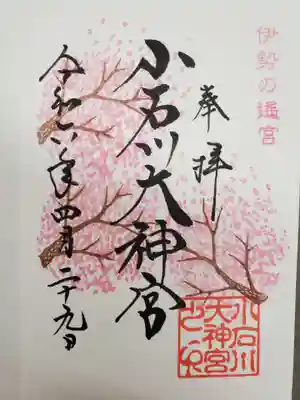 伊勢の遙宮
奉拝
小石川大神宮
令和六年四月二十九日
小石川
大神宮